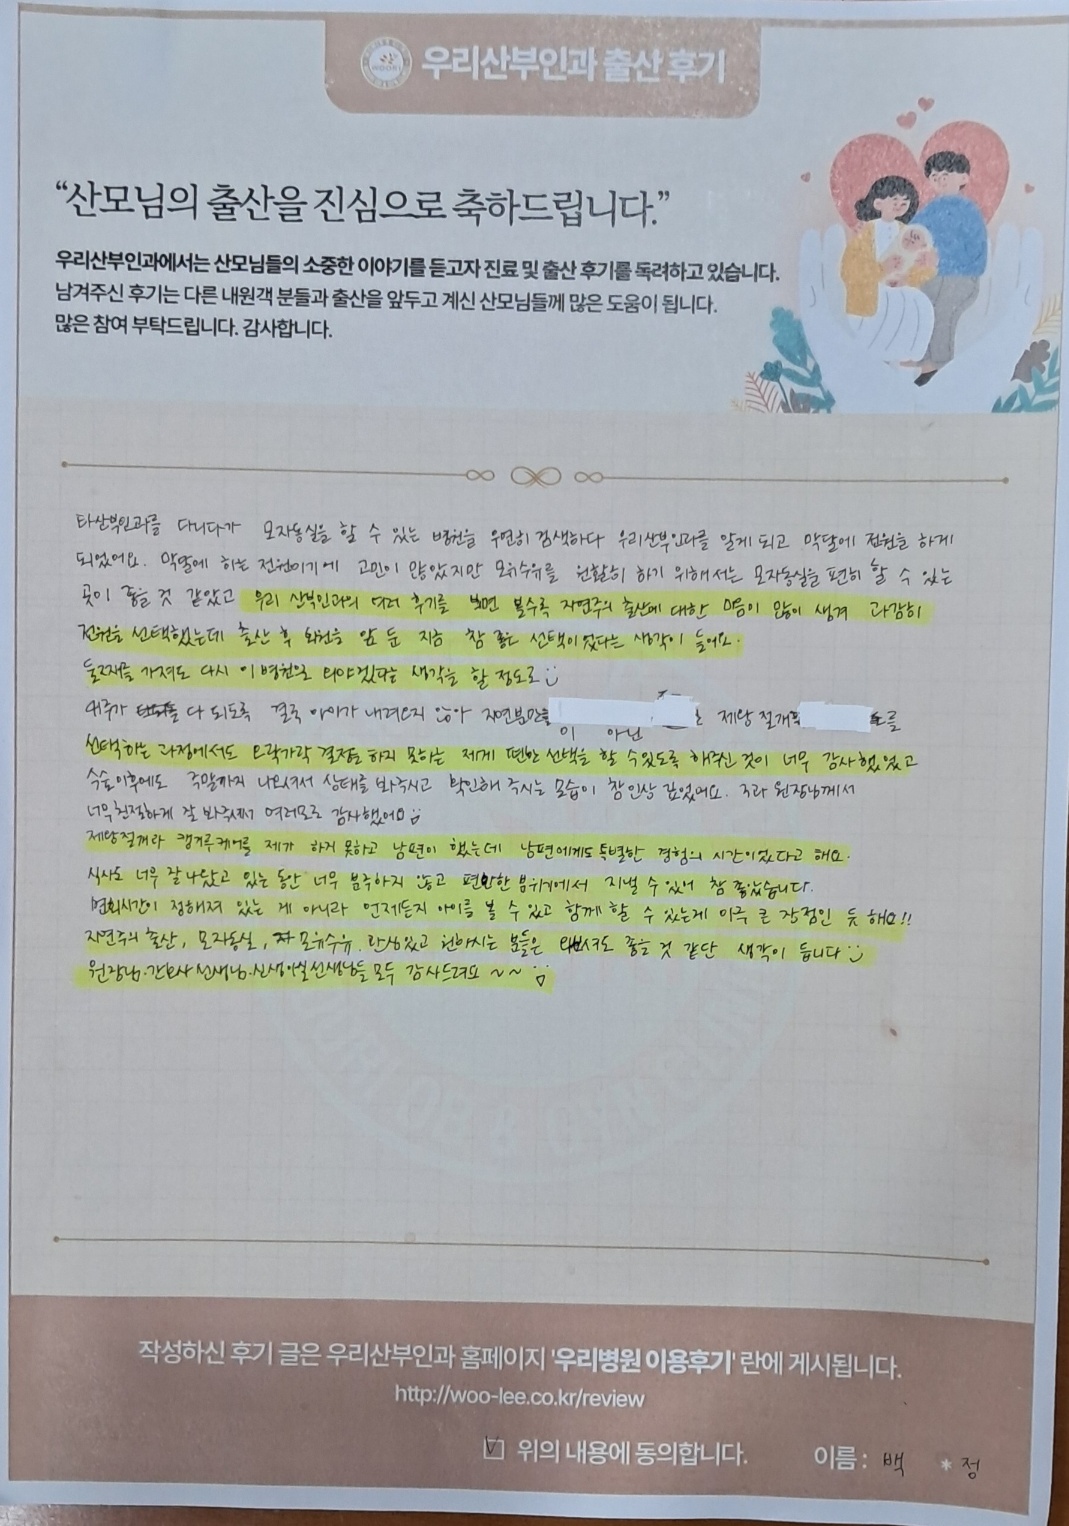 우리산부인과 출산 후기
“산모님의 출산을 진심으로 축하드립니다.”
우리산부인과에서는 산모님들의 소중한 이야기를 듣고자 진료 및 출산 후기를 독려하고 있습니다.
남겨주신 후기는 다른 내원객 분들과 출산을 앞두고 계신 산모님들께 많은 도움이 됩니다.
많은 참여 부탁드립니다. 감사합니다.
타산부인과를 다니다가 모자동실을 할 수 있는 병원을 우연히 검색하다 우리산부인과를 알게 되고 막달에 전원을 하게
되었어요. 막달에 하는 전원이기에 고민이 많았지만 모유수유를 원활히 하기 위해서는 모자동실을 편히 할 수 있는
곳이 좋을 것 같았고 우리 산부인과의 여러 후기를 보면 볼수록 자연주의 출산에 대한 마음이 많이 생겨 과감히
전원을 선택했는데 출산 후 퇴원을 앞 둔 지금 참 좋은 선택이었다는 생각이 들어요.
둘째를 가져도 다시 이 병원으로 와야겠다는 생각을 할 정도로
다 되도록 결국 아이가 내려오지 않아 자연분만을
이 아닌 제왕절개 를
선택하는 과정에서도 오락가락 결정을 하지 못하는 제게 편안 선택을 할 수 있도록 해주신 것이 너무 감사했었고
수술이후에도 주말까지 나오셔서 상태를 봐주시고 확인해 주시는 모습이 참 인상 깊었어요. 원장님께서
너무 친절하게 잘 봐주셔서 여러모로 감사했어요
제왕절개라 캥거루케어를 제가 하지 못하고 남편이 했는데 남편에게도 특별한 경험의 시간이었다고 해요.
식사도 너무 잘 나왔고 있는 동안 너무 분주하지 않고 편안한 분위기에서 지낼 수 있어 참 좋았습니다.
면회시간이 정해져 있는 게 아니라 언제든지 아이를 볼 수 있고 함께 할 수 있는게 아주 큰 장점인 듯 해요!!
자연주의 출산, 모자동실, 모유수유 관심있고 원하시는 분들은 좋을 것 같단 생각이 듭니다
원장님.간호사 선생님.신생아실 선생님들 모두 감사드려요 ~~
작성하신 후기 글은 우리산부인과 홈페이지 '우리병원 이용후기' 란에 게시됩니다.
http://woo-lee.co.kr/review
위의 내용에 동의합니다. 이름 : 백 * 정